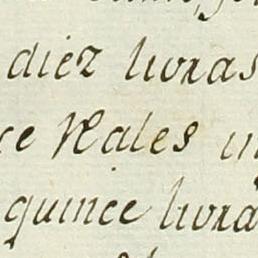 diez livras
ce Reales
quince livra